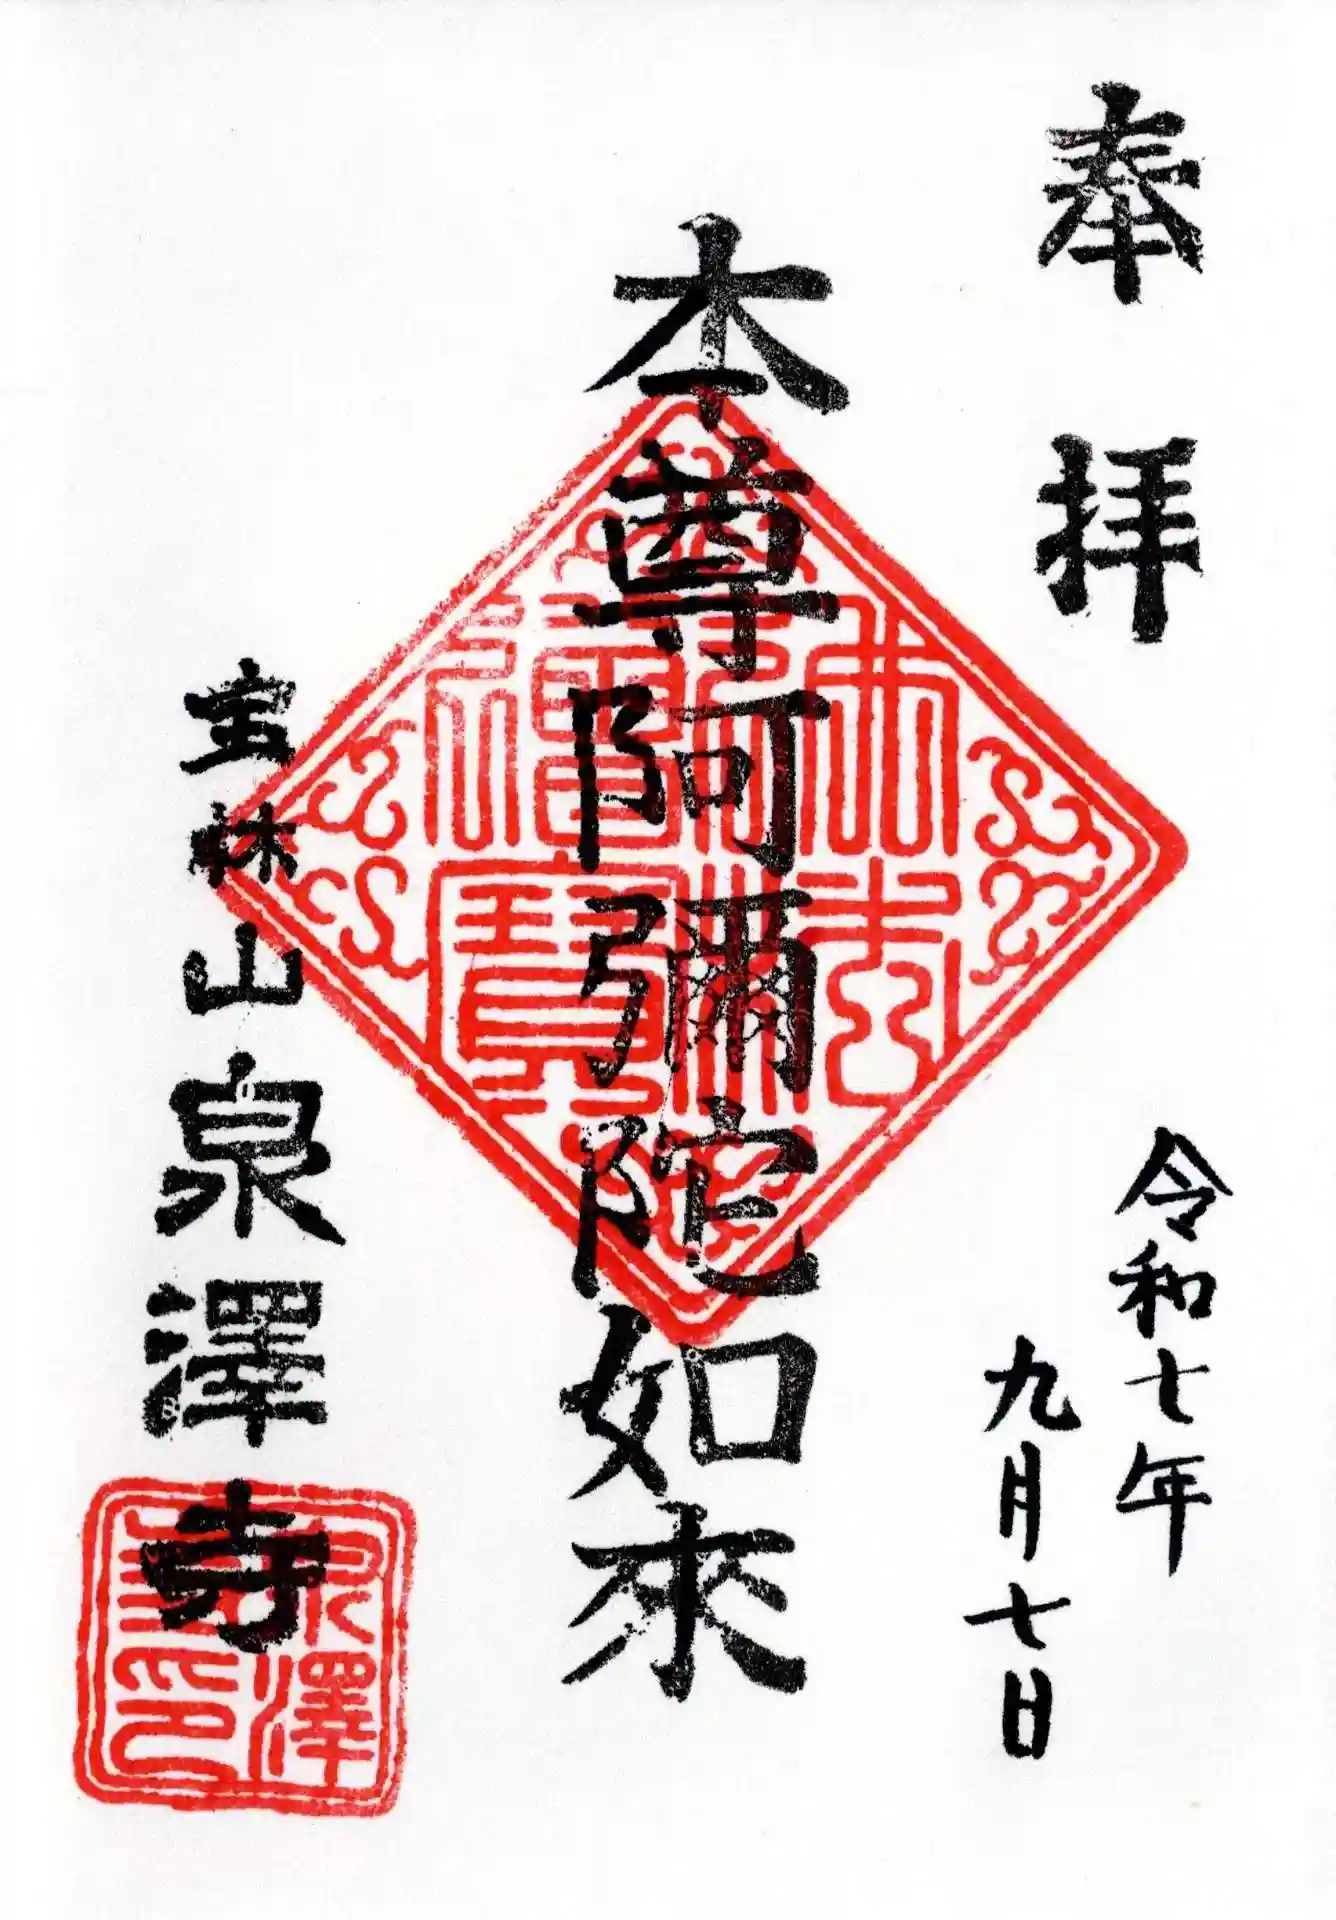 奉拝
令和七年
九月七日
本尊阿彌陀如來
佛法僧寶
宝林山泉澤寺
泉澤寺印